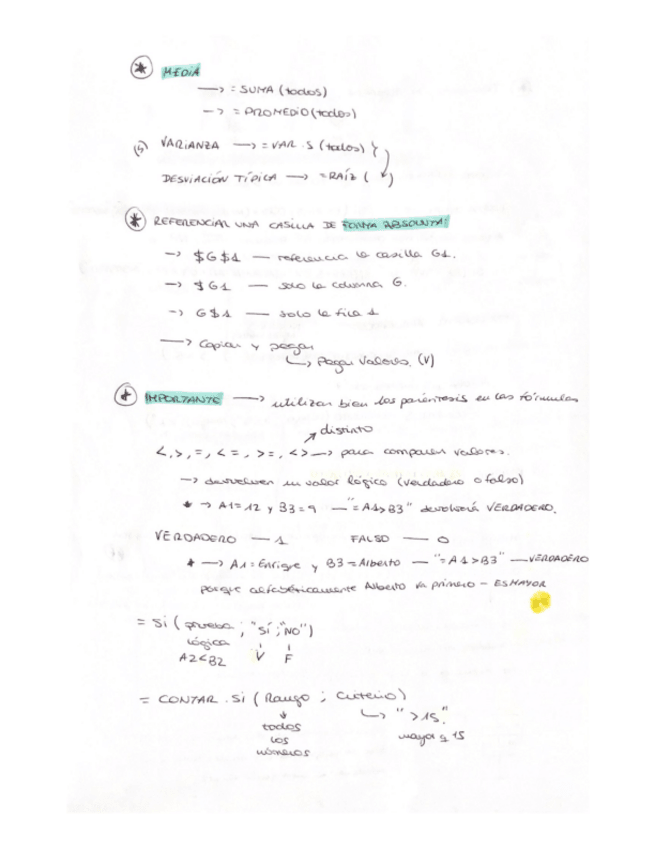 * MEDIA
→ = SUMA (todos)
→ = PROMEDIO (todos)
(S) VARIANZA → = VAR.S (todos) }
DESVIACIÓN TÍPICA → = RAÍZ ( )
* REFERENCIAR UNA CASILLA DE FORMA ABSOLUTA:
→ $G$1 — referencia la casilla G1.
→ $G1 — solo la columna G.
→ G$1 — solo la fila 1
→ Copiar y pegar
↳ Pegar valores. (V)
* IMPORTANTE → utilizar bien los paréntesis en las fórmulas
↗ distinto
<, >, =, <=, >=, <> → para comparar valores.
→ devuelven un valor lógico (verdadero o falso)
* → A1=12 y B3=9 — "=A1>B3" devolverá VERDADERO.
VERDADERO — 1 FALSO — 0
* → A1=Enrique y B3=Alberto — "=A1>B3" — VERDADERO
porque alfabéticamente Alberto va primero - ES MAYOR
= SI (prueba ; "SÍ";"NO")
lógica
A2<B2 V F
= CONTAR.SI (Rango ; Criterio)
↓ ↳ ">15"
todos mayor q 15
los
números